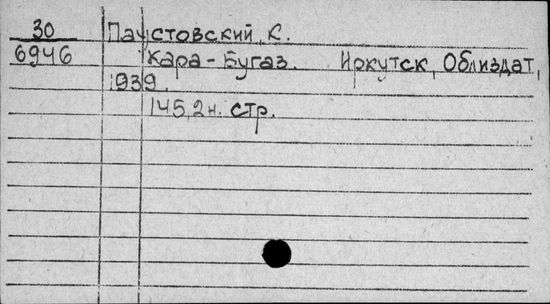 30 Паустовский, К.
6946 Кара-Бугаз. Иркутск, Облиздат,
1939.
145,2н. стр.